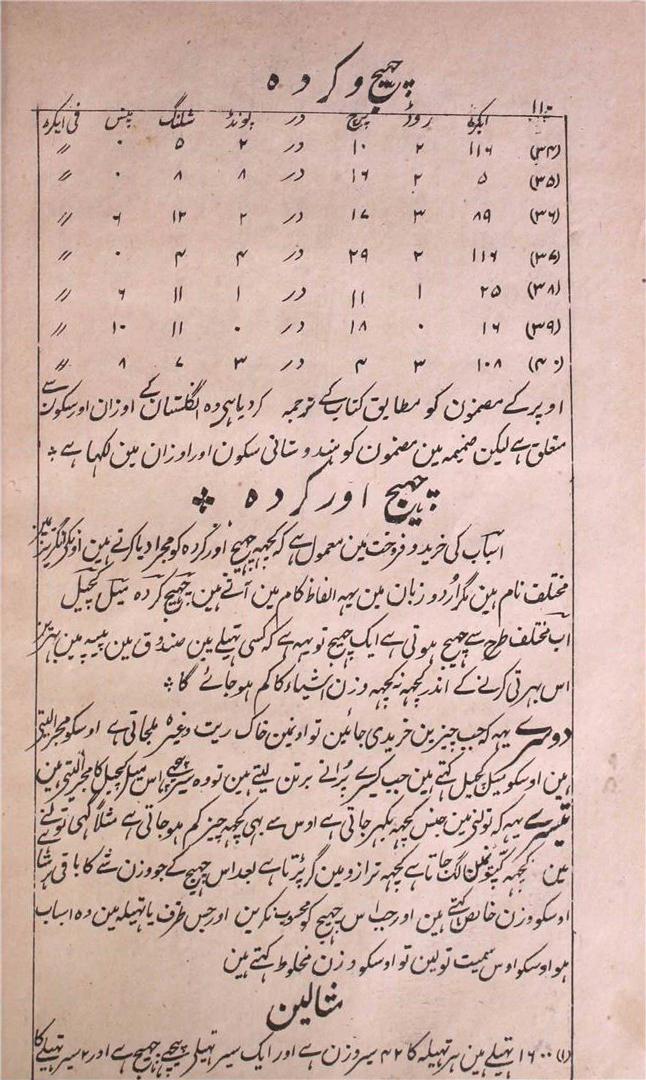 چھیج و کردہ
۱۱۰
ایکڑ روڈ پرچ در پونڈ شلنگ پنس فی ایکڑہ
(۳۴) ۱۱۶ ۲ ۱۰ در ۲ ۵ ۰ //
(۳۵) ۵ ۲ ۱۶ در ۸ ۸ ۰ //
(۳۶) ۸۹ ۳ ۱۷ در ۲ ۱۲ ۶ //
(۳۷) ۱۱۶ ۲ ۲۹ در ۴ ۴ ۰ //
(۳۸) ۲۵ ۱ ۱۱ در ۱ ۱۱ ۶ //
(۳۹) ۱۶ ۰ ۱۸ در ۰ ۱۱ ۱۰ //
(۴۰) ۱۰۸ ۳ ۴ در ۳ ۷ ۸ //
اوپر کے مضمون کو مطابق کتاب کے ترجمہ کردیا ہی وہ انگلستان کے اوزان اور سکون سے
متعلق ہے لیکن ضمیمہ مین مضمون کو ہندوستانی سکون اور اوزان مین لکہا ہے
چھیج اور کردہ
اسباب کی خرید و فروخت مین معمول ہے کہ کچہہ چھیج اور کردہ کو مجرا دیا کرتے ہین اور
مختلف نام ہین مگر اردو زبان مین یہہ الفاظ کام مین آتے ہین چھیج کردہ میل کچیل
اب مختلف طرح سے چھیج ہوتی ہے ایک چھیج تو یہہ ہے کہ کسی تہیلے مین صندوق مین پیپہ مین
اس بہرتی کرنے کے اندر کچہہ نہ کچہہ وزن اشیاء کا کم ہو جائے گا
دوسرے یہہ کہ جب چیزین خریدی جائین تو اونمین خاک ریت وغیرہ ملجاتی ہے اوسکو مجرا لیتے
ہین اوسکو میل کچیل کہتے ہین جب کسیرے پُرانے برتن لیتے ہین تو وہ سیر پیچہے اس میل کچیل کا مجرا لیتی ہین
تیسرے یہہ کہ تولنی مین جنس کچہہ بکہر جاتی ہے اوس سے بہی کچہہ چیز کم ہو جاتی ہے مثلاً گہی تولنے
مین کچہہ کپونمین لگ جاتا ہے کچہہ ترازو مین گر پڑتا ہے بعد اس چھیج کے جو وزن شے کا باقی رہتا
اوسکو وزن خالص کہتے ہین اور جب اس چھیج کو محسوب نکرین اور جس ظرف یا تہیلہ مین وہ اسباب
ہو اوسکو اوس سمیت تولین تو اوسکو وزن مخلوط کہتے ہین
مثالین
(۱) ۱۶۰۰ تہیلے مین ہر تہیلہ کا ۴۲ سیر وزن ہے اور ایک سیر تہیلی پیچہے چھیج ہے اور ۲ سیر تہیلے کا